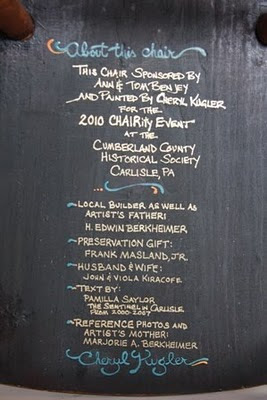 About this chair
THIS CHAIR SPONSORED BY
ANN & TOM BENJEY
AND PAINTED BY CHERYL KUGLER
FOR THE
2010 CHAIRity EVENT
AT THE
CUMBERLAND COUNTY
HISTORICAL SOCIETY
CARLISLE, PA
~LOCAL BUILDER AS WELL AS
ARTIST'S FATHER:
H. EDWIN BERKHEIMER
~PRESERVATION GIFT:
FRANK MASLAND, JR.
~HUSBAND & WIFE:
JOHN & VIOLA KIRACOFE
~TEXT BY:
PAMILLA SAYLOR
THE SENTINEL IN CARLISLE
FROM 2000-2007
~REFERENCE PHOTOS AND
ARTIST'S MOTHER:
MARJORIE A. BERKHEIMER
Cheryl Kugler